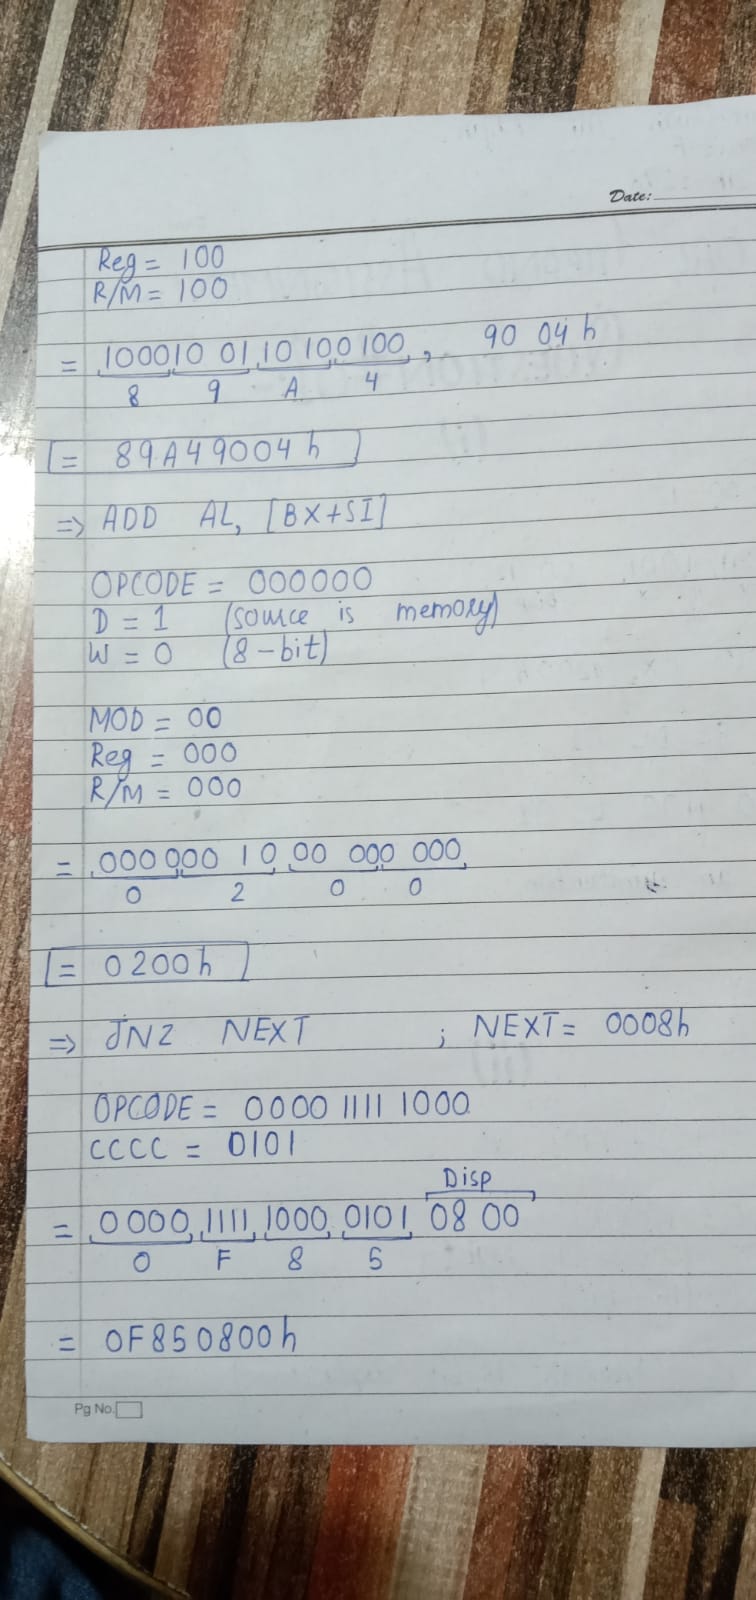 Date:
Reg = 100
R/M = 100
= 100010 01 10 100 100, 90 04 h
8 9 A 4
= 89A49004 h
=> ADD AL, [BX+SI]
OPCODE = 000000
D = 1 (source is memory)
W = 0 (8-bit)
MOD = 00
Reg = 000
R/M = 000
= 000000 10 00 000 000
0 2 0 0
= 0200h
=> JNZ NEXT ; NEXT = 0008h
OPCODE = 0000 1111 1000
CCCC = 0101
Disp
= 0000 1111 1000 0101 08 00
0 F 8 5
= 0F850800h
Pg No.